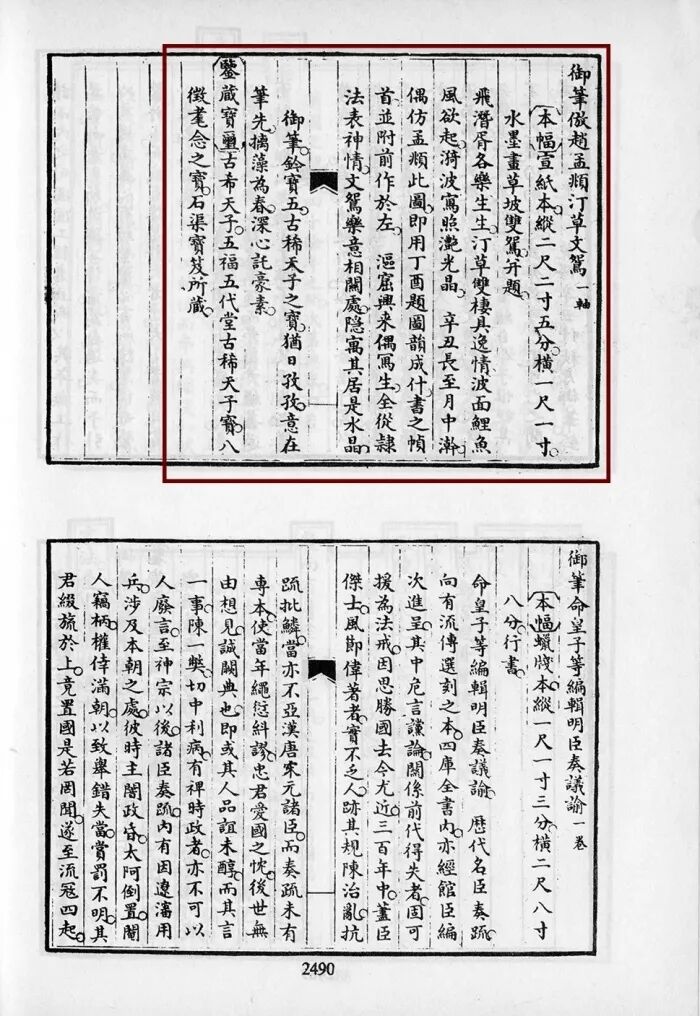 御筆倣趙孟頫汀草文鴛一軸
本幅宣紙本縱二尺二寸五分橫一尺一寸
水墨畫草坡雙鴛并題
飛潛胥各樂生生汀草雙棲具逸情波面鯉魚
風欲起漪波寫照灩光晶 辛丑長至月中澣
偶仿孟頫此圖即用丁酉題圖韻成什書之幀
首並附前作於左 漚窟興来偶寫生全從隷
法表神情文鴛樂意相關處隐寓其居是水晶
御筆鈐寶五古稀天子之寶猶日孜孜意在
筆先摛藻為春深心託豪素
鑒藏寶璽古希天子五福五代堂古稀天子寶八
徵耄念之寶石渠寶笈所藏
御筆命皇子等編輯明臣奏議諭一卷
本幅蠟牋本縱一尺一寸三分橫二尺八寸
八分行書
命皇子等編輯明臣奏議諭 歴代名臣奏疏
向有流傳選刻之本四庫全書内亦經館臣編
次進呈其中危言讜論關係前代得失者固可
援為法戒因思勝國去今尤近三百年中藎臣
傑士風節偉著者實不乏人跡其規陳治亂抗
疏批鱗當亦不亞漢唐宋元諸臣而奏疏未有
專本使當年繩愆糾謬忠君愛國之忱後世無
由想見誠闕典也即或其人品誼未醇而其言
一事陳一弊切中利病有裨時政者亦不可以
人廢言至神宗以後諸臣奏疏内有因遼瀋用
兵涉及本朝之處彼時主闇政昏太阿倒置閹
人竊柄權倖滿朝以致舉錯失當賞罰不明其
君綴旒於上竟置國是若罔聞遂至流寇四起
2490